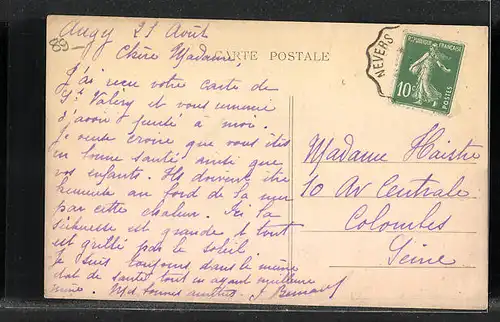 89
Augy 21 Août
Chère Madame,
CARTE POSTALE
J'ai reçu votre carte de
St Valéry et vous remercie
d'avoir pensé à moi.
Je veux croire que vous êtes
en bonne santé ainsi que
vos enfants. Ils doivent être
heureux au bord de la mer
par cette chaleur. Ici la
sécheresse est grande & tout
est grillé par le soleil.
Je suis toujours dans le même
état de santé tout en ayant meilleure
mine. Mes bonnes amitiés. J. Bernard
NEVERS
REPUBLIQUE FRANÇAISE
10
POSTES
Madame Haistre
10 Av Centrale
Colombes
Seine